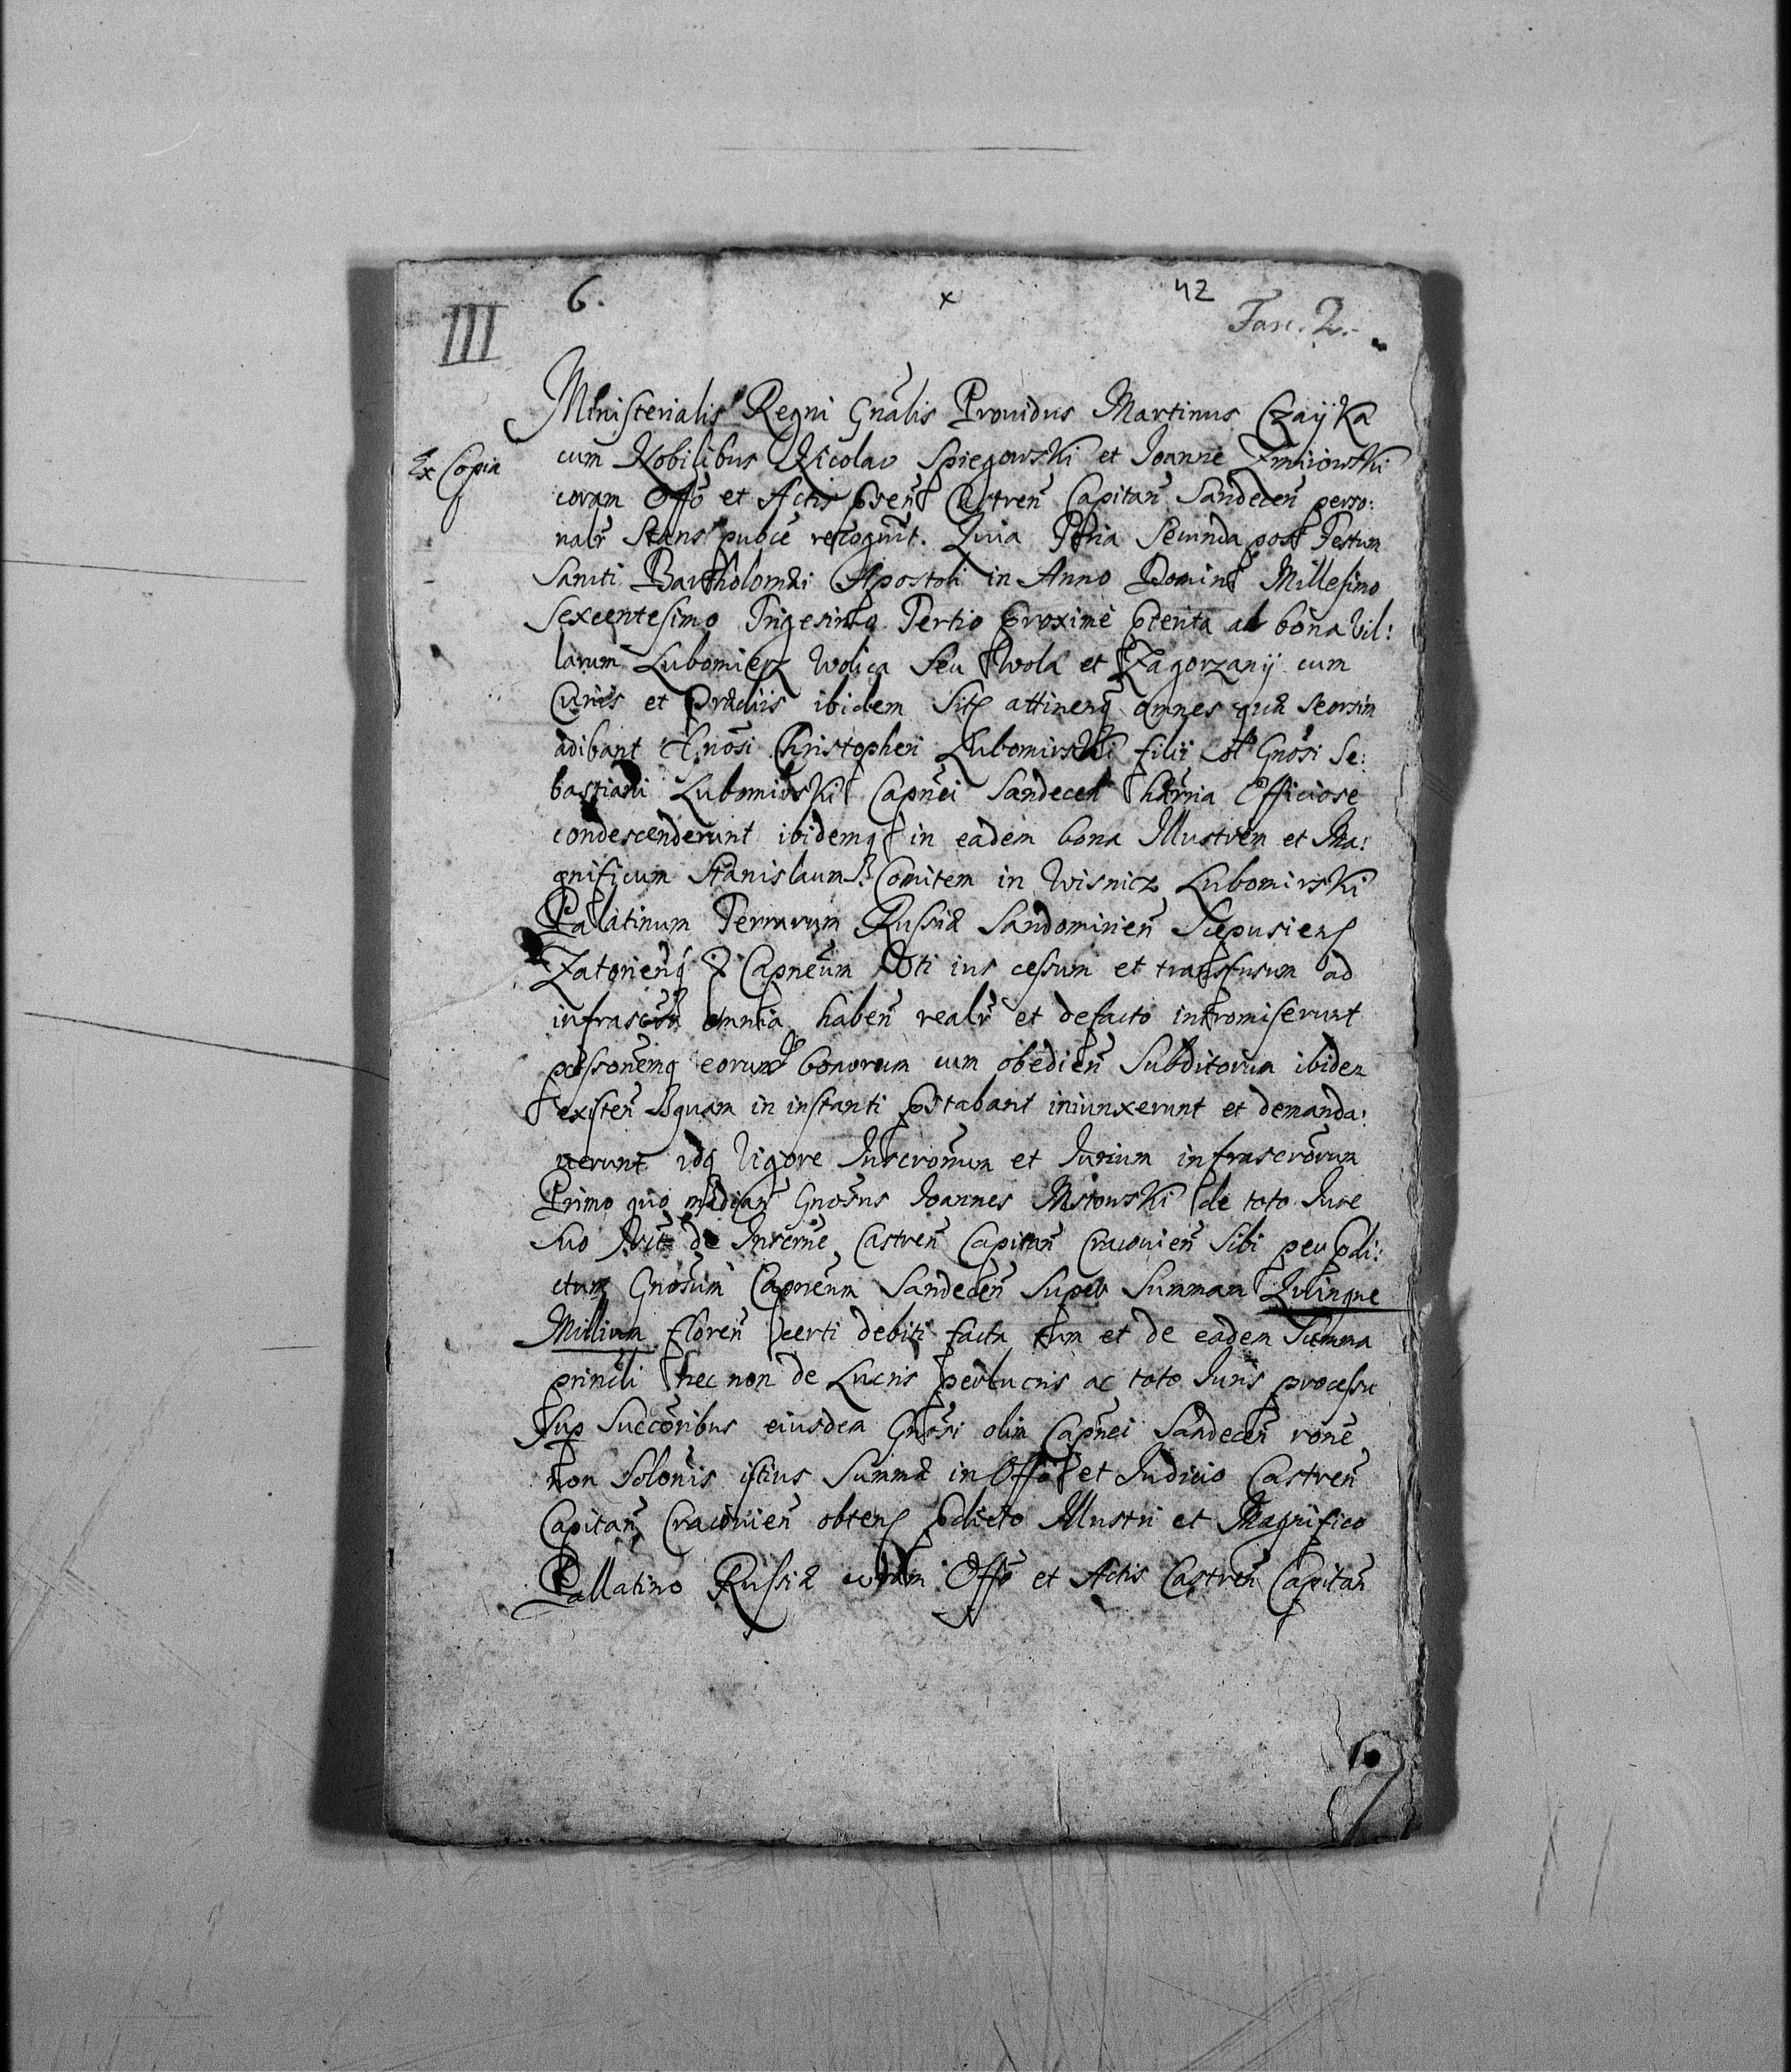 6. x 42
III Fasc. 2.
Ministerialis Regni Gnãlis Prouidus Martinus Czaÿka
Ex Copia
cum Nobilibus Nicolao Spiegowski et Joanne
coram Offõ et Actis Castreñ Capitañ Sandeceñ perso:
nalr̃ Stans pubce recognit. Quia Feria Secunda post Festum
Sancti Bartholomæi Apostoli in Anno Domini Millesimo
Sexcentesimo Trigesimo Tertio proxime pterita ad bona Vil:
larum Lubomierz Wolica Seu Wola et Zagorzanÿ cum
Curijs et Prædiis ibidem Sitis attinenq omnes quæ seorsim
adibant Gnõsi Christopheri Lubomirski filii ol Gnõsi Se:
bastiani Lubomirski Capñei Sandeceñ Officiose
condescenderunt ibidemq in eadem bona Illustrem et Ma:
gnificum Stanislaum Comitem in Wisnicz Lubomirski
Palatinum Terrarum Russiæ Sandomirieñ Scepusieñ
Zatorienq & Capneum ius cessum et transfusum ad
infrascr omnia habeñ realr̃ et defacto intromiserunt
possonemq eorund bonorum cum obedieñ Subditorum ibidem
existeñ quam in instanti pstabant iniunxerunt et demanda:
uerunt idq Vigore Inscronum et Iurium infrascrorum
Primo quo median Gnosus Joannes Mstowski de toto Iure
Suo de Inscrne Castreñ Capitañ Cracouieñ Sibi per pdi:
ctum Gnosum Capneum Sandeceñ Super Summam Quinque
Millium floreñ certi debiti facta tum et de eadem Summa
princili nec non de Lucris perlucris ac toto Iuris processu
Sup Succoribus eiusdem Gnosi olim Capnei Sandeceñ rone
non Solonis istius Summæ in Offo et Iudicio Castreñ
Capitañ Cracouieñ obteñ pdicto Illustri et Magnifico
Pallatino Russiæ coram Offo et Actis Castreñ Capitañ